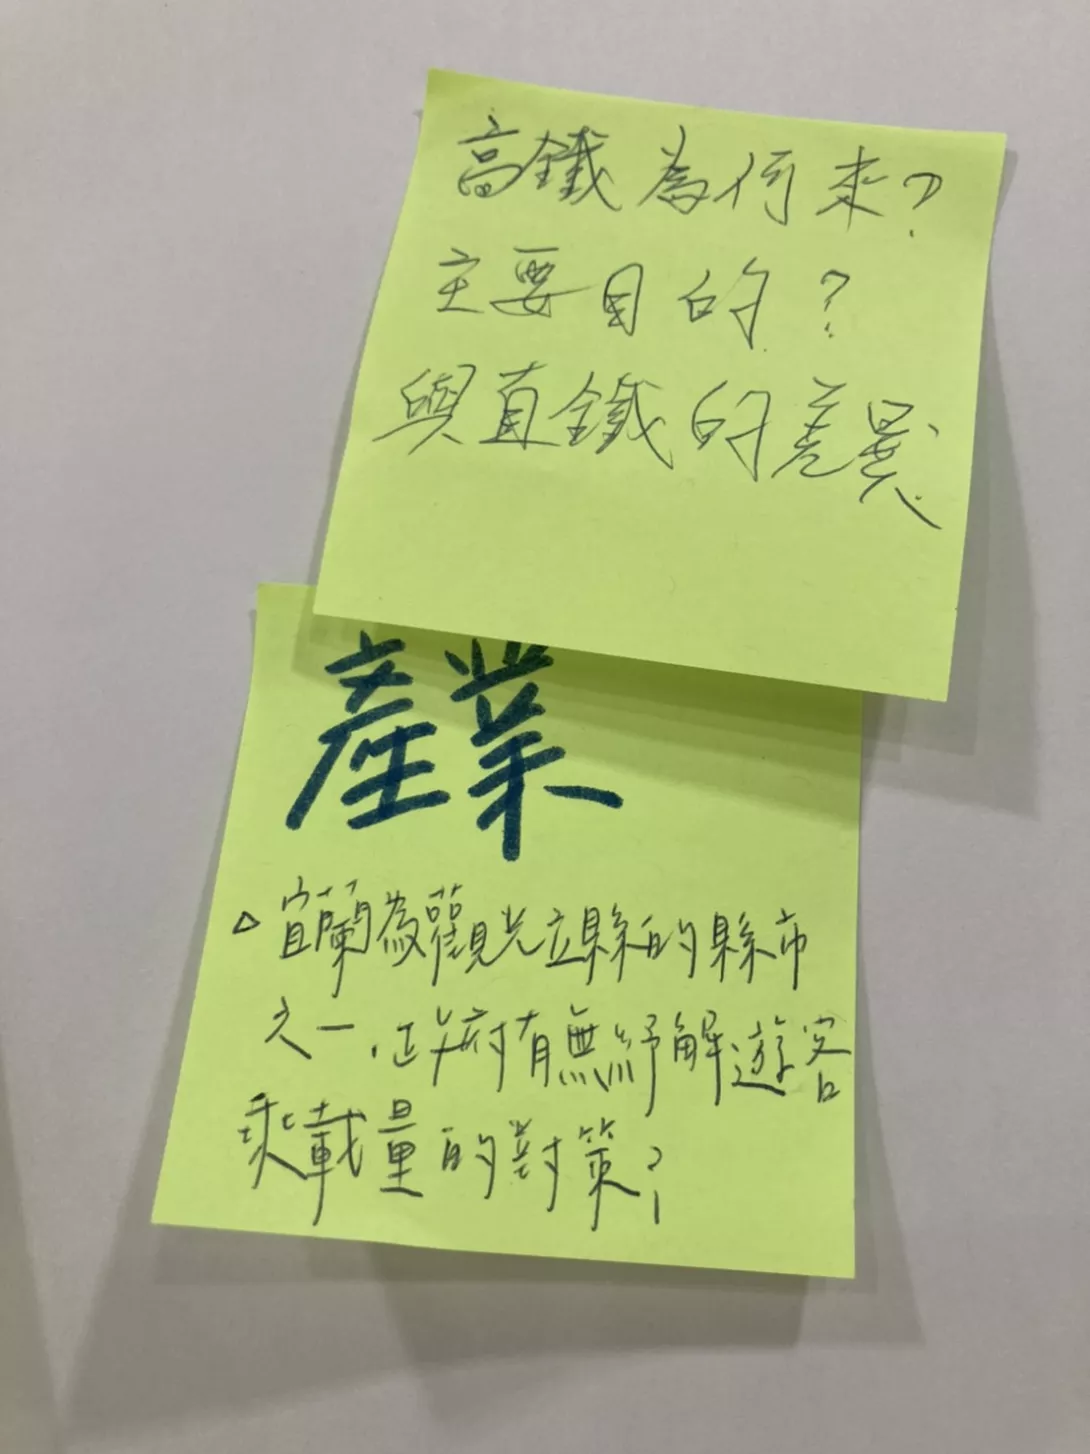 高鐵為何來?
主要目的?
與直鐵的差異.
產業
△宜蘭為觀光立縣的縣市
之一,政府有無紓解遊客
乘載量的對策?